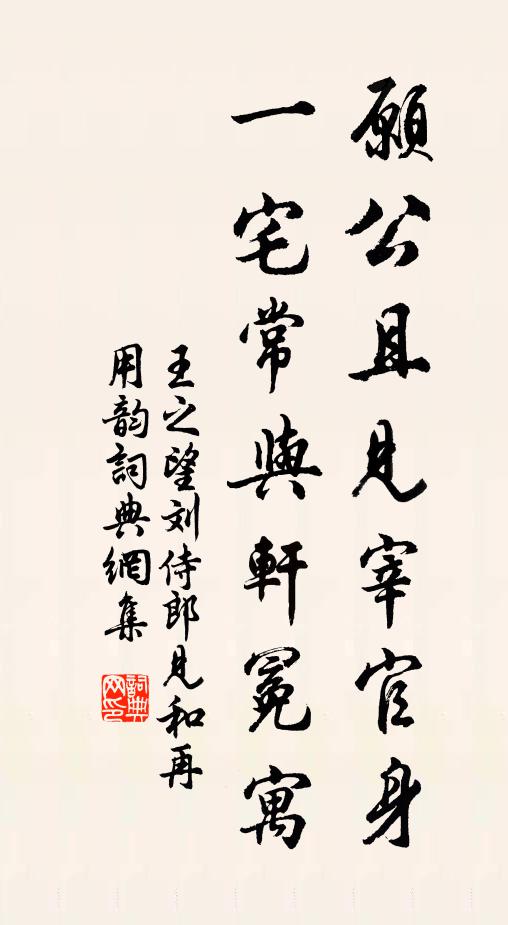 願公且見宰官身
一宅常與軒冕寓
王之望刘侍郎見和再
用韵詞典網集
詞典
网印